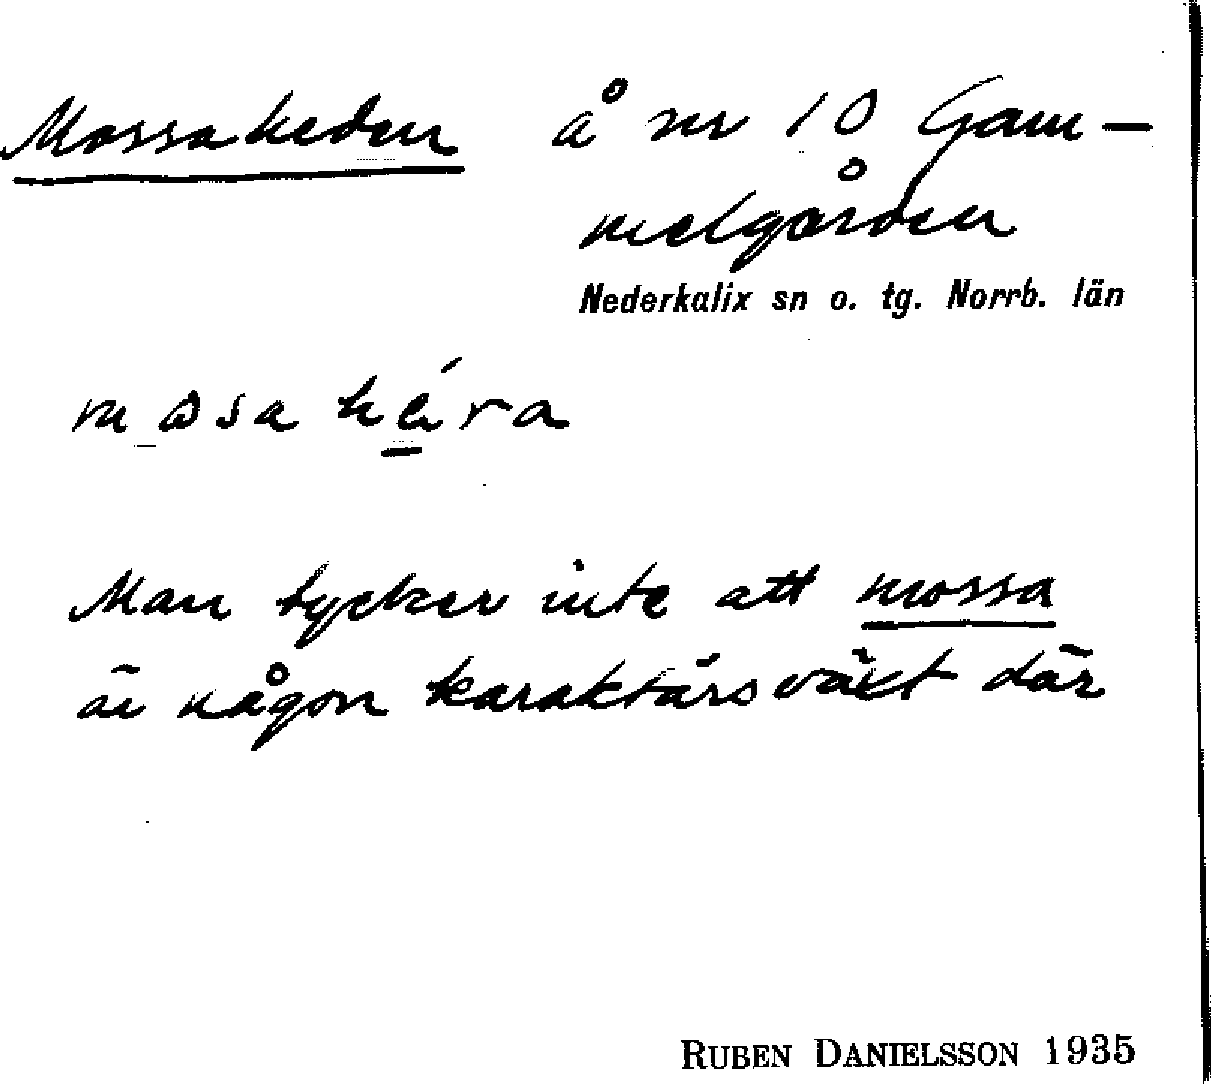 Mossaheden å nr 10 Gam-
melgården
Nederkalix sn o. tg. Norrb. län
mosa héra
Man tycker inte att mossa
är någon karaktärsväxt där
RUBEN DANIELSSON 1935